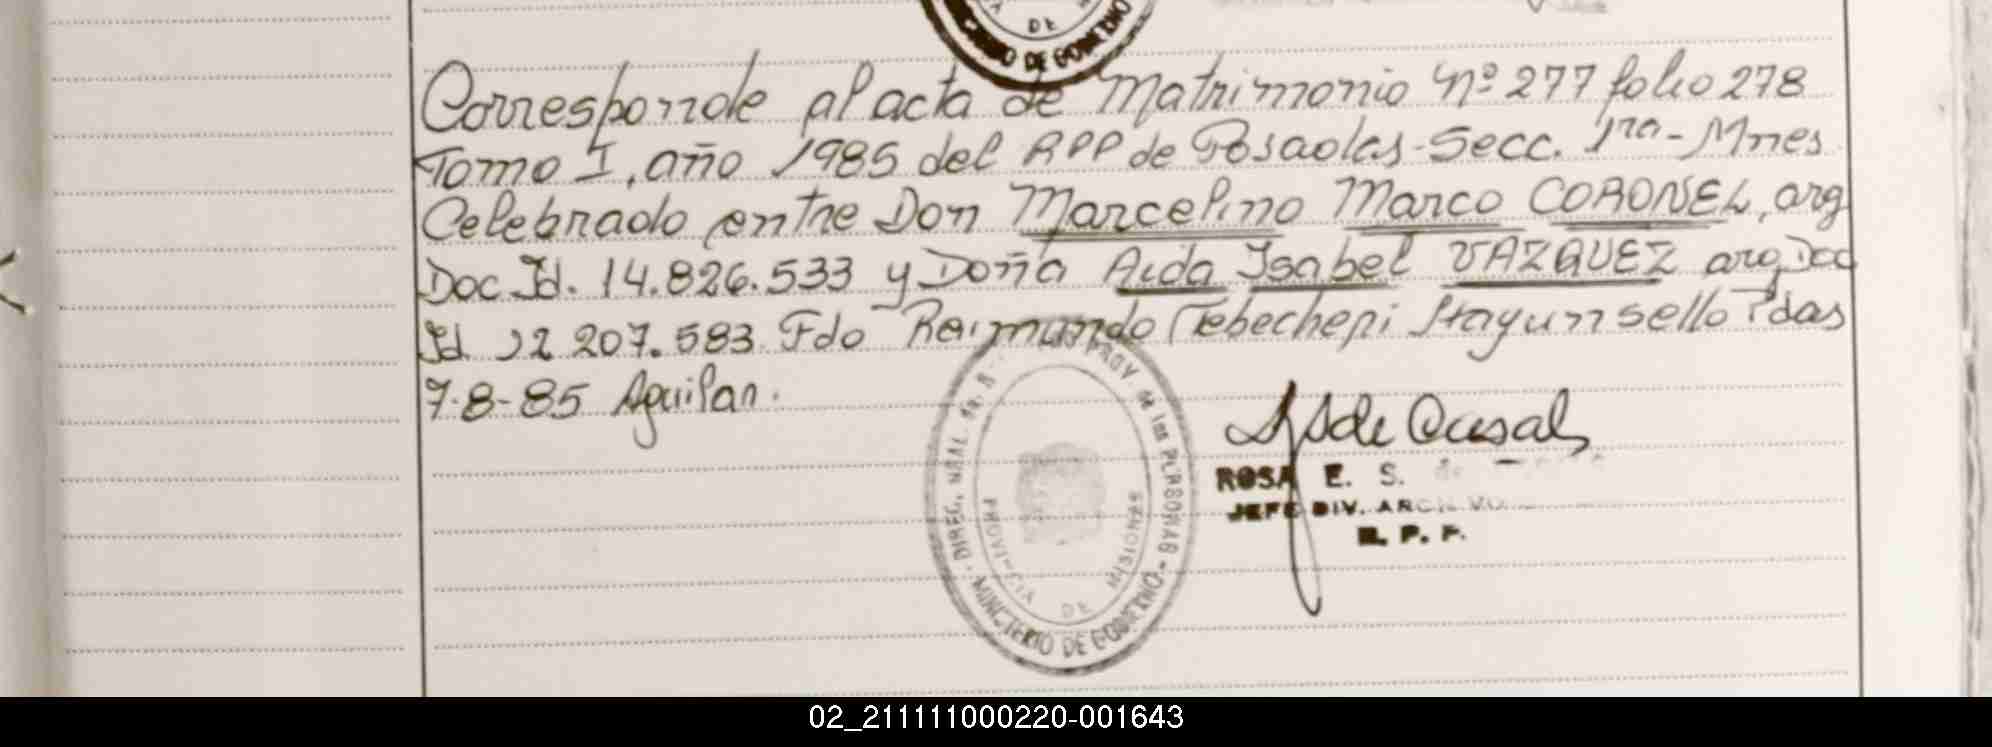 DE
MINISTERIO DE GOBIERNO
Corresponde al acta de Matrimonio Nº 277 folio 278
Tomo I, año 1985 del RPP de Posadas - Secc. 1ra - Mnes
Celebrado entre Don Marcelino Marco CORONEL, arg
Doc Id. 14.826.533 y Doña Aida Isabel VAZQUEZ arg Doc
Id 12 207.583 Fdo Reimundo Hay un sello Pdas
7-8-85 Aguilar.
DIREC. GRAL. PROV. de las PERSONAS - MINISTERIO DE GOBIERNO
PROVINCIA DE MISIONES
S de Casal
ROSA E. S. de
JEFE DIV. ARCHIVO
R. P. P.
02_211111000220-001643